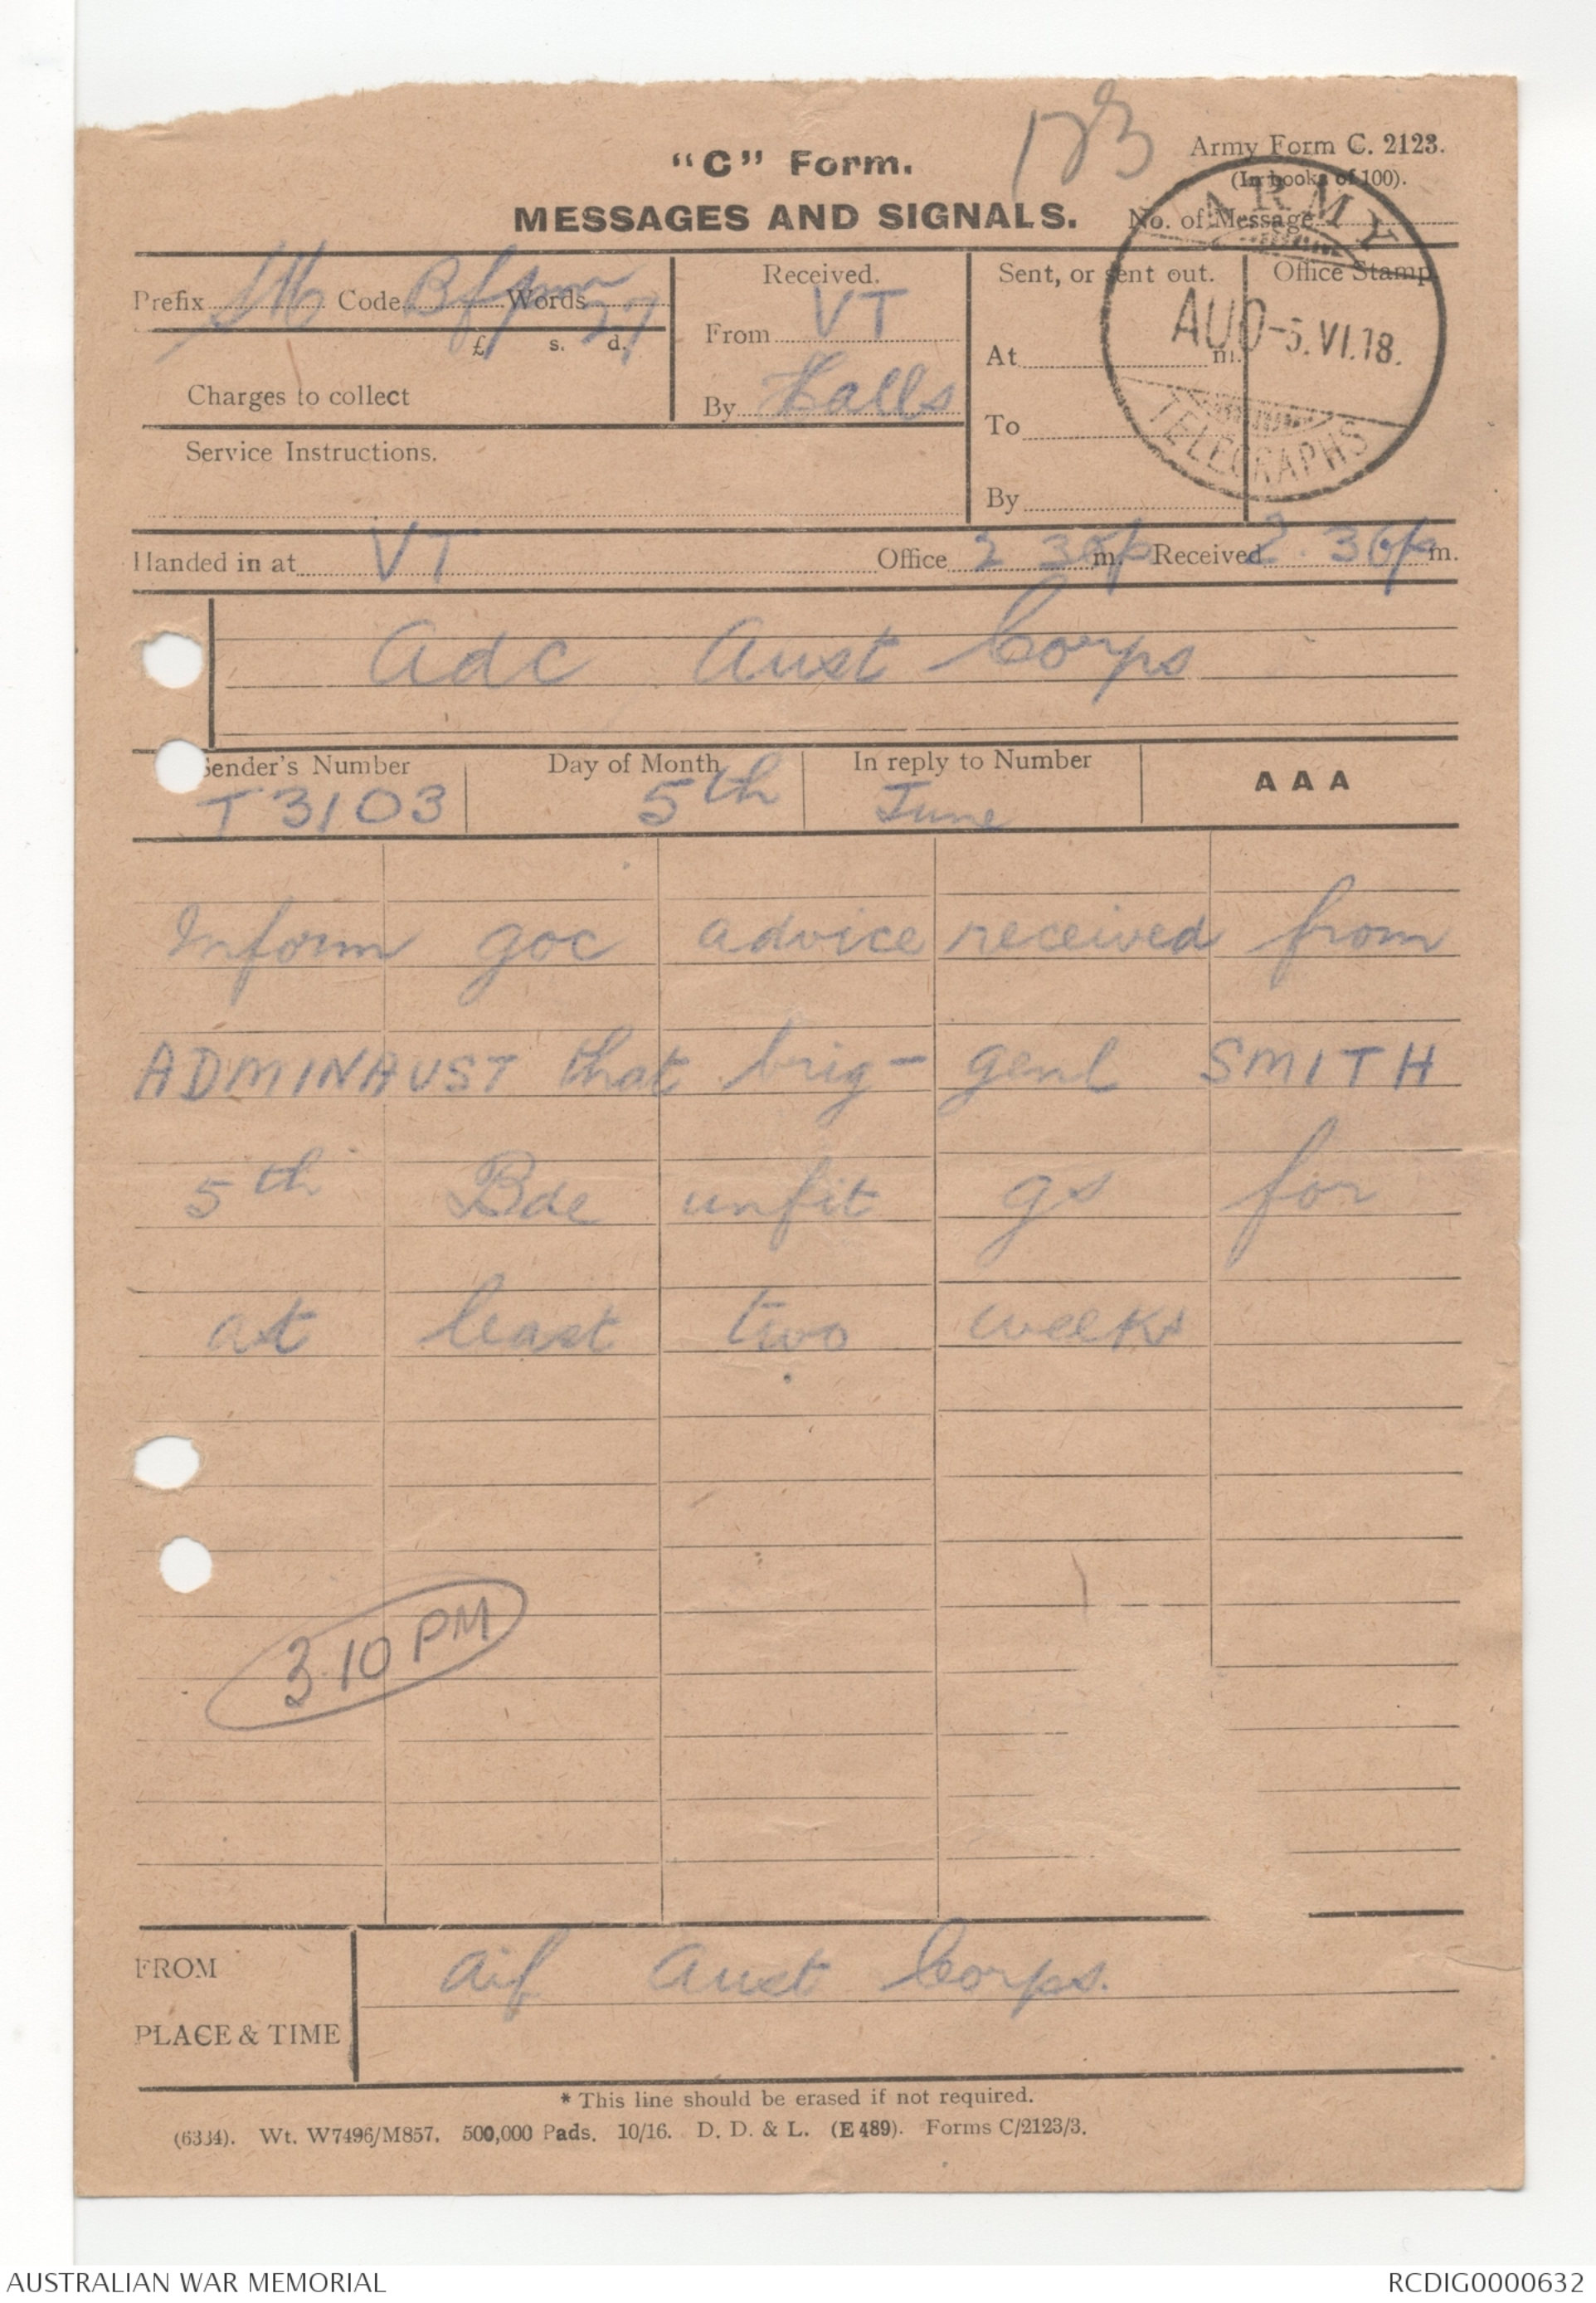 173
Army Form C. 2123.
(In books of 100).
"C" Form.
MESSAGES AND SIGNALS.
No. of Message
Prefix SM Code Words 37
£ s. d.
Charges to collect
Service Instructions.
Received.
From VT
By Halls
Sent, or sent out.
At m.
To
By
Office Stamp
ARMY
AUO -5.VI.18.
TELEGRAPHS
Handed in at VT Office 2 35p m. Received 2.36p m.
Adc Aust Corps
Sender's Number Day of Month In reply to Number AAA
T3103 5th June
Inform goc advice received from
ADMINAUST that brig- genl SMITH
5th Bde unfit gs for
at least two weeks
3.10 PM
FROM aif Aust Corps.
PLACE & TIME
* This line should be erased if not required.
(6334). Wt. W7496/M857. 500,000 Pads. 10/16. D. D. & L. (E 489). Forms C/2123/3.
AUSTRALIAN WAR MEMORIAL RCDIG0000632